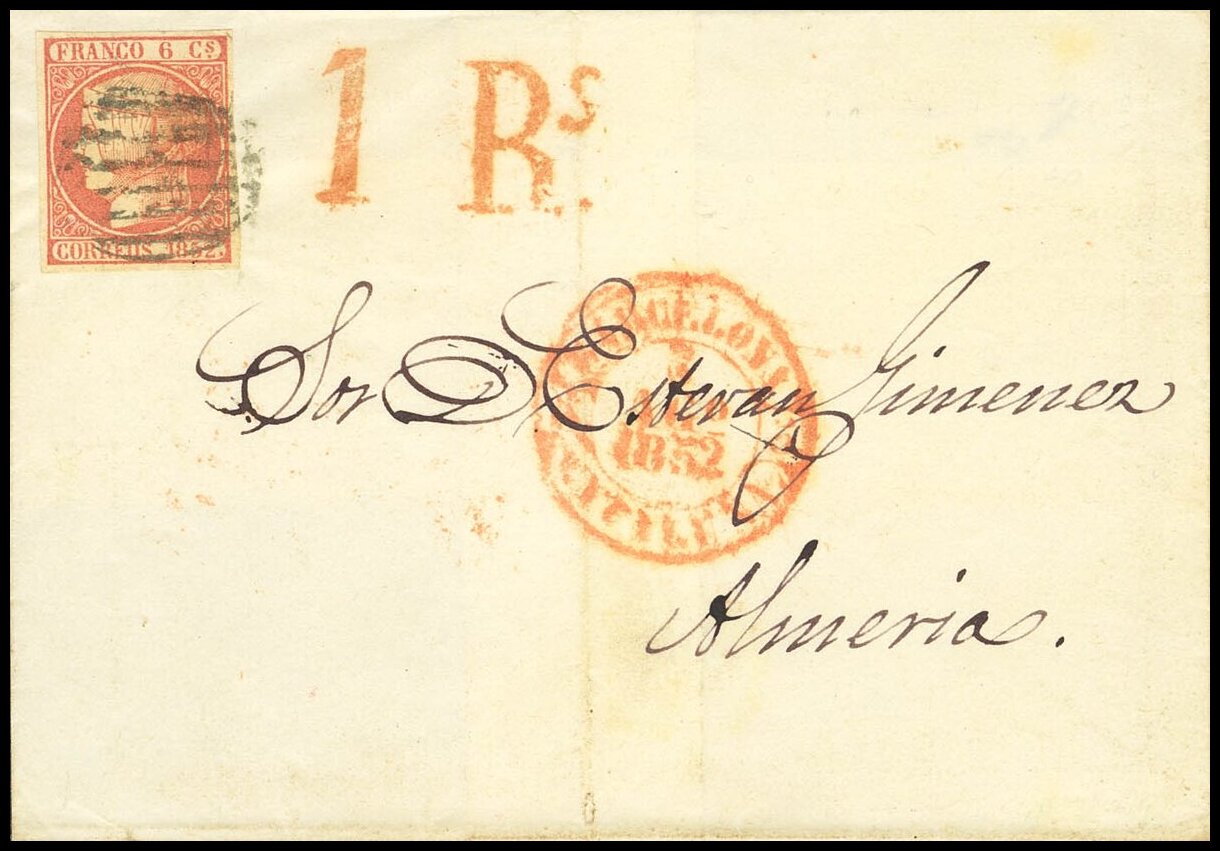 FRANCO 6 Cs
CORREOS 1852.
1 Rs.
BARCELONA
1852
CATALUÑA
Sor D Estevan Gimenez
Almeria.